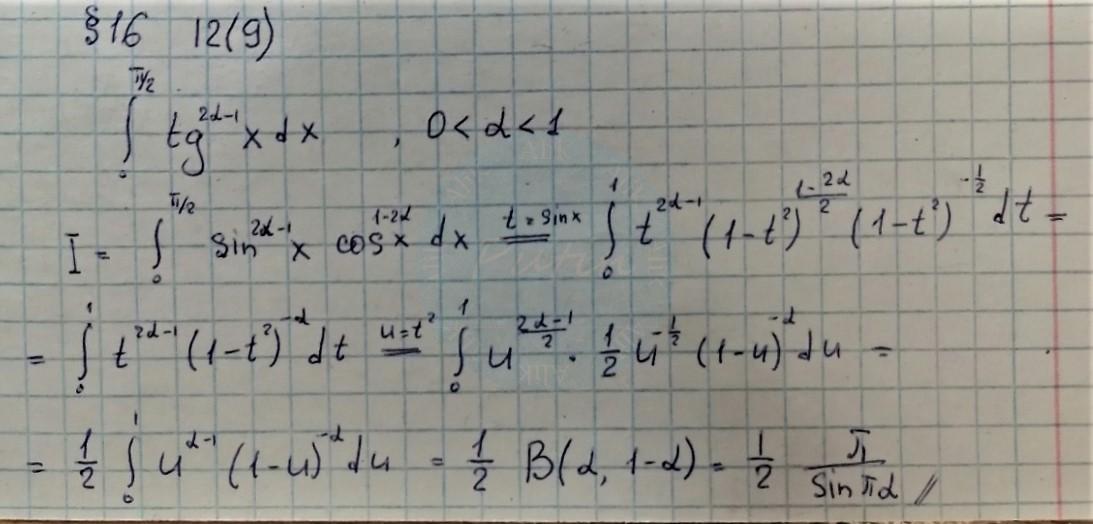 §16 12(9)
∫₀^{π/2} tg^{2α-1} x dx , 0 < α < 1
I = ∫₀^{π/2} sin^{2α-1} x cos^{1-2α} x dx =^{t = sin x} ∫₀^1 t^{2α-1} (1-t²)^{\frac{1-2α}{2}} (1-t²)^{-\frac{1}{2}} dt =
= ∫₀^1 t^{2α-1} (1-t²)^{-α} dt =^{u = t²} ∫₀^1 u^{\frac{2α-1}{2}} · \frac{1}{2} u^{-\frac{1}{2}} (1-u)^{-α} du =
= \frac{1}{2} ∫₀^1 u^{α-1} (1-u)^{-α} du = \frac{1}{2} B(α, 1-α) = \frac{1}{2} \frac{π}{sin πα} //